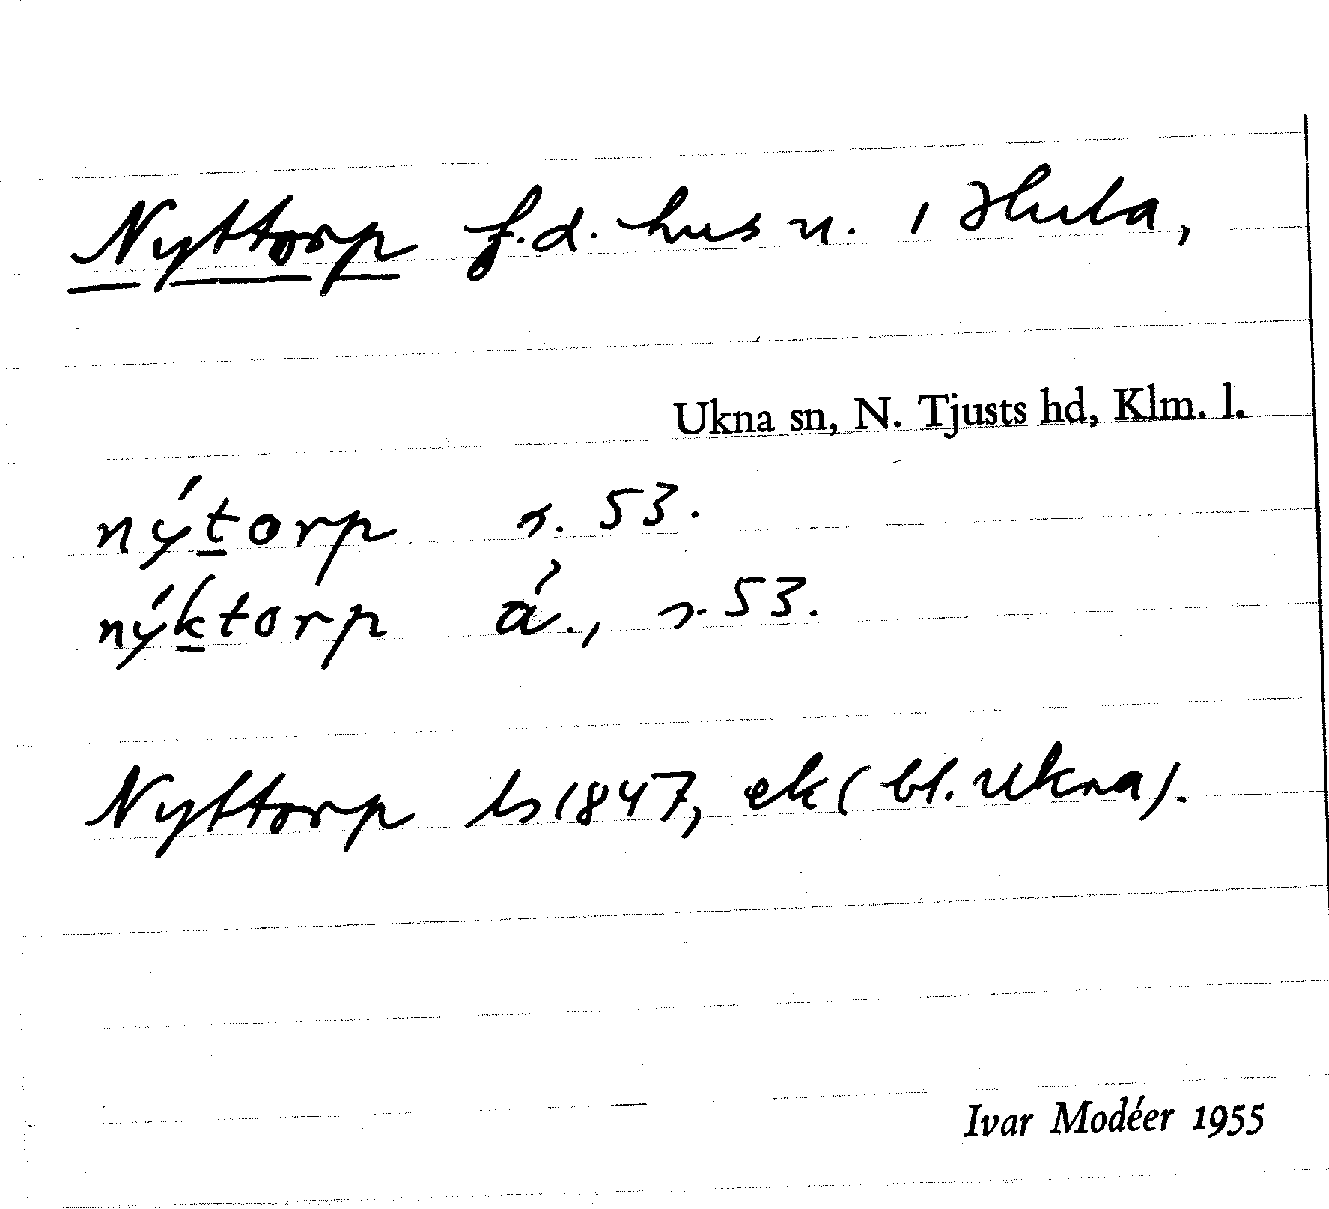 Nyttorp f.d. hus u. i Hula,
Ukna sn, N. Tjusts hd, Klm. l.
nýtorp s. 53.
nýktorp á., s. 53.
Nyttorp ls 1847, ek (bl. Ukna).
Ivar Modéer 1955